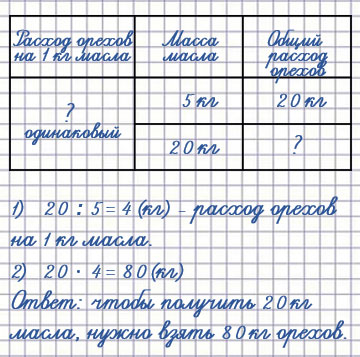 Расход орехов на 1 кг масла
Масса масла
Общий расход орехов
?
одинаковый
5 кг
20 кг
20 кг
?
1) 20 : 5 = 4 (кг) – расход орехов
на 1 кг масла.
2) 20 · 4 = 80 (кг)
Ответ: чтобы получить 20 кг
масла, нужно взять 80 кг орехов.